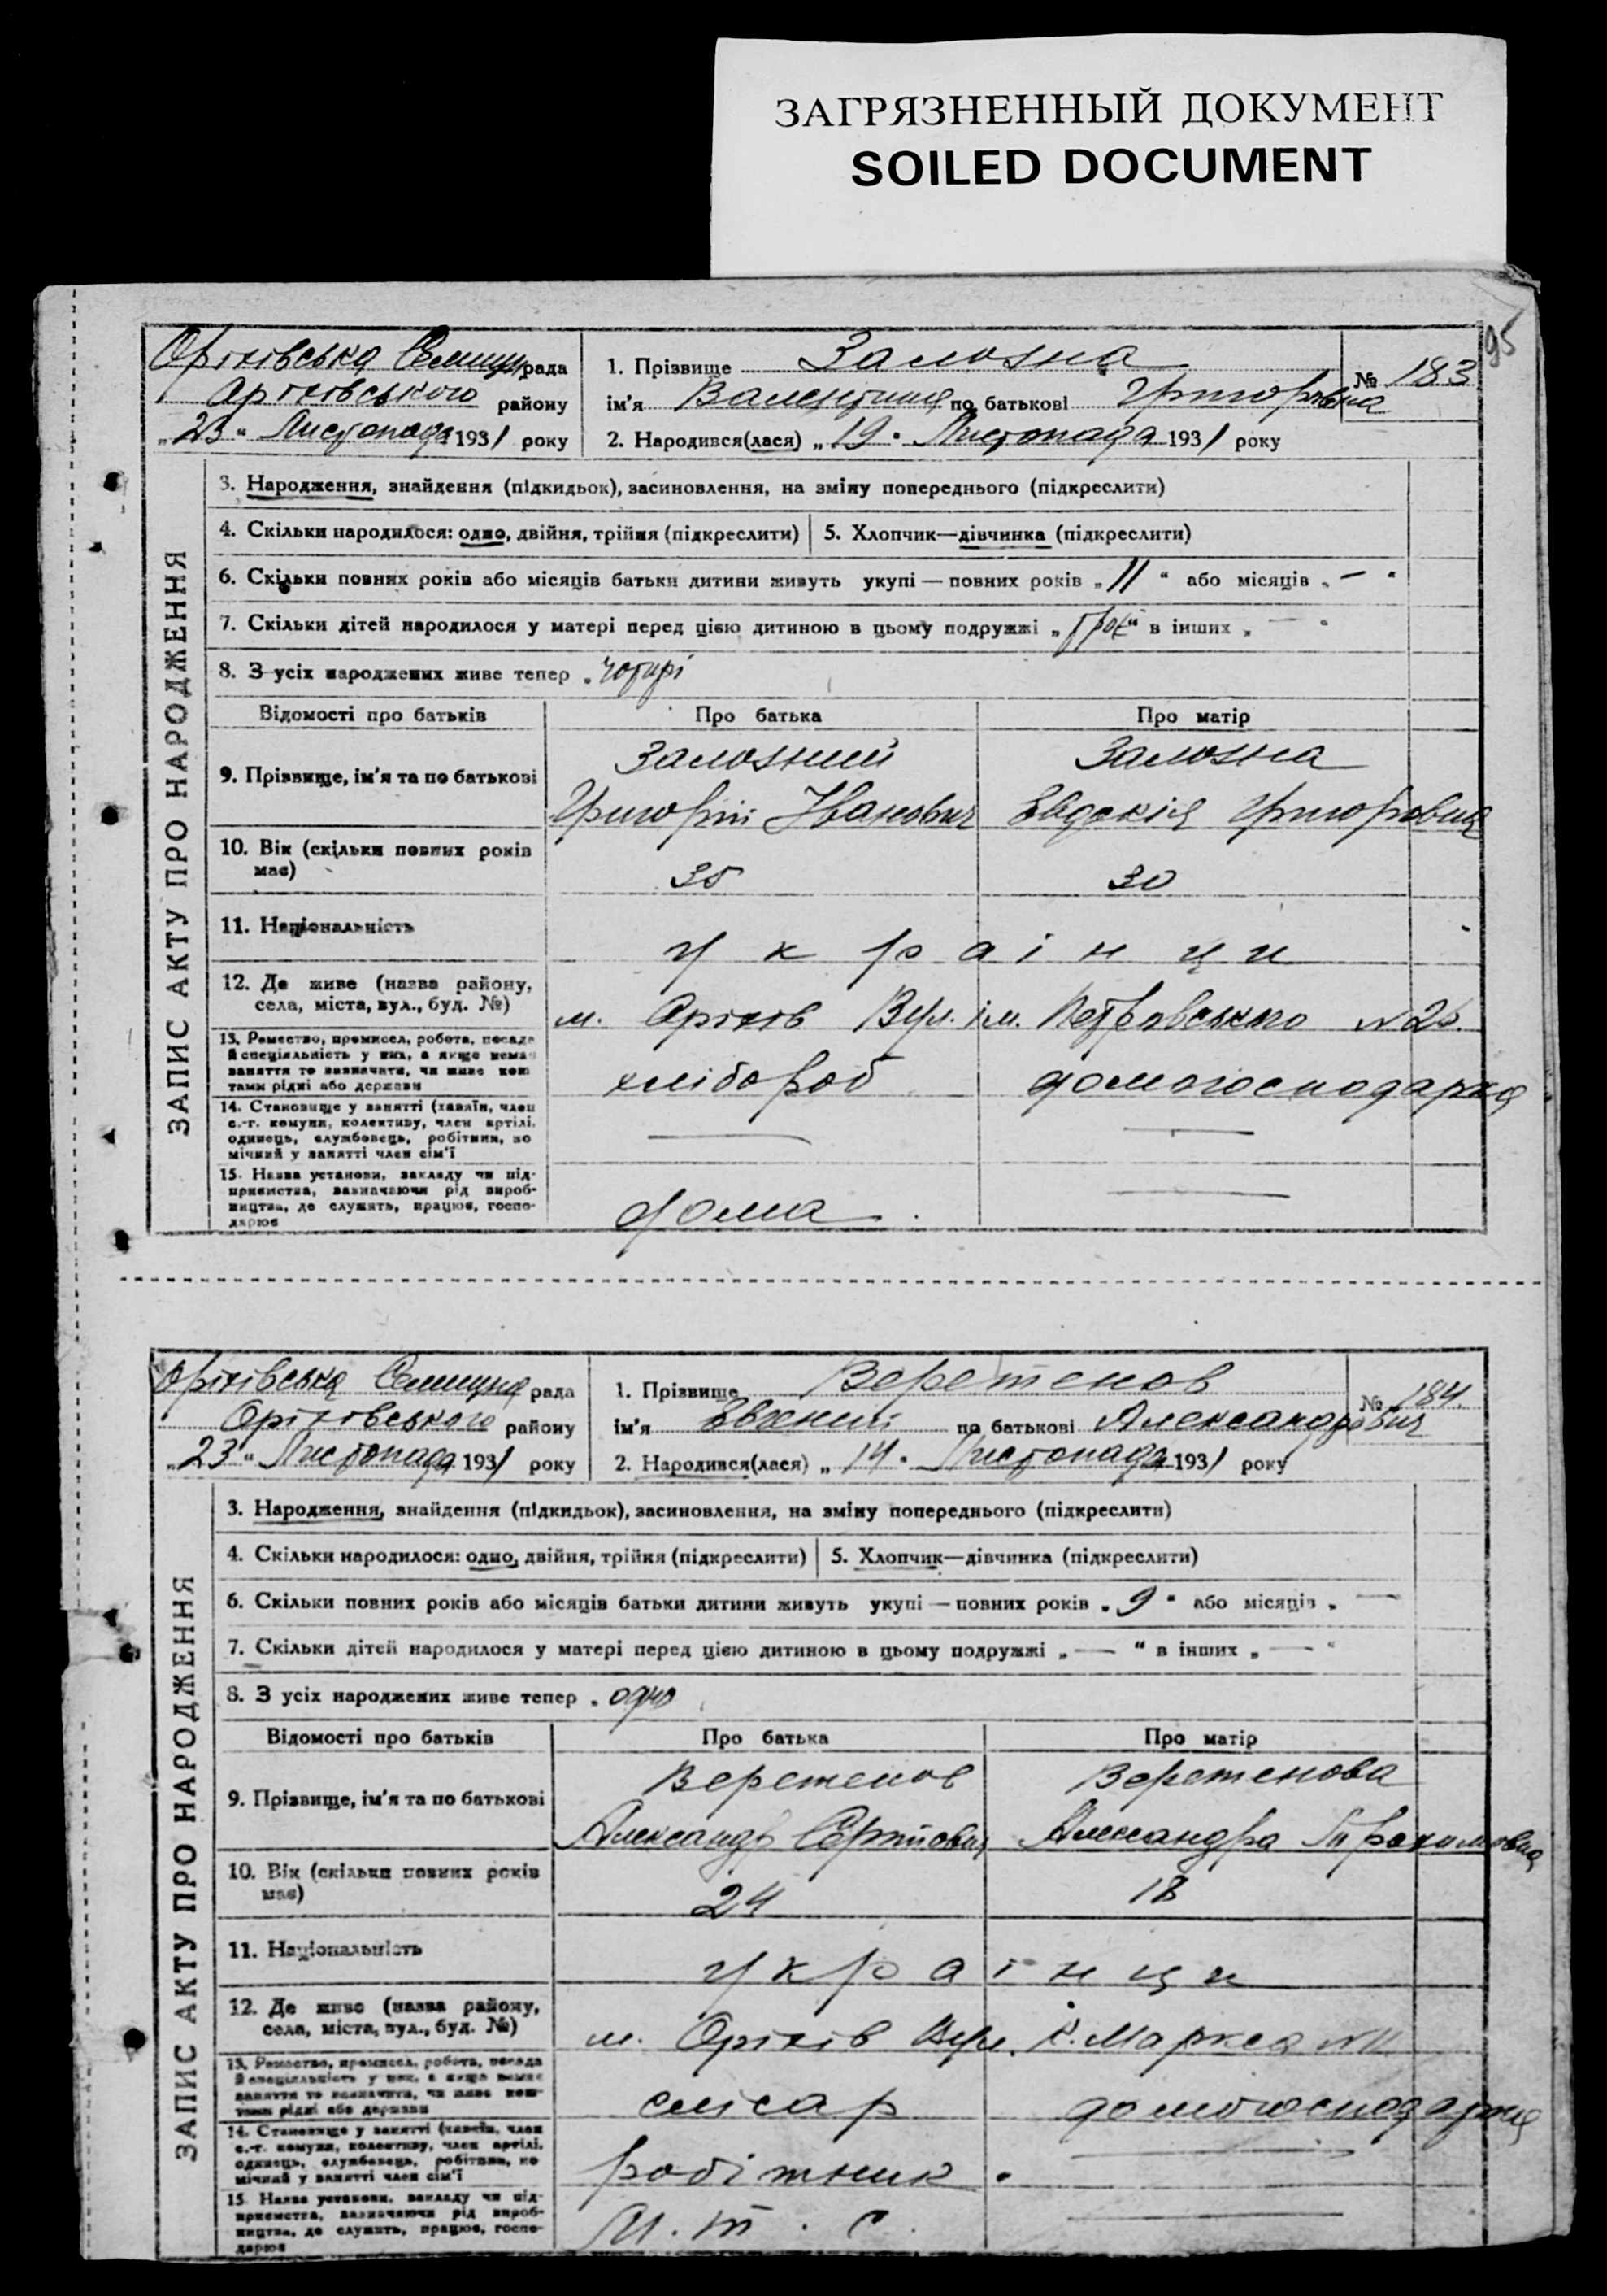 ЗАГРЯЗНЕННЫЙ ДОКУМЕНТ
SOILED DOCUMENT
95
Оріхівська Селищн рада
Оріхівського району
„23“ Листопада 1931 року
1. Прізвище Залозна
№ 183
ім'я Валентина по батькові Григоровна
2. Народився(лася) „19“ Листопада 1931 року
ЗАПИС АКТУ ПРО НАРОДЖЕННЯ
3. Народження, знайдення (підкидьок), засиновлення, на зміну попереднього (підкреслити)
4. Скільки народилося: одно, двійня, трійня (підкреслити) 5. Хлопчик—дівчинка (підкреслити)
6. Скільки повних років або місяців батьки дитини живуть укупі — повних років „11“ або місяців „—“
7. Скільки дітей народилося у матері перед цією дитиною в цьому подружжі „троє“ в інших „—“
8. З усіх народжених живе тепер „чотирі
Відомості про батьків Про батька Про матір
9. Прізвище, ім'я та по батькові
Залозний Залозна
Григорій Іванович Євдокія Григоровна
10. Вік (скільки повних років має)
35 30
11. Національність
українци
12. Де живе (назва району, села, міста, вул., буд. №)
м. Оріхів Вул. ім. Петровського №
13. Ремество, промисел, робота, посада
й спеціяльність у них, а якщо немає
заняття то зазначити, чи живе кош
тами рідні або держави
хлібороб домогосподарка
14. Становище у занятті (хазяїн, член
с.-г. комуни, колективу, член артілі,
одинець, службовець, робітник, по
мічний у занятті член сім'ї
— —
15. Назва установи, закладу чи під-
приємства, зазначаючи рід вироб-
ництва, де служить, працює, госпо-
дарює
дома —
Оріхівська Селищна рада
Оріхівського району
„23“ Листопада 1931 року
1. Прізвище Веретенов
№ 184.
ім'я Євгеній по батькові Александрович
2. Народився(лася) „14“ Листопада 1931 року
ЗАПИС АКТУ ПРО НАРОДЖЕННЯ
3. Народження, знайдення (підкидьок), засиновлення, на зміну попереднього (підкреслити)
4. Скільки народилося: одно, двійня, трійня (підкреслити) 5. Хлопчик—дівчинка (підкреслити)
6. Скільки повних років або місяців батьки дитини живуть укупі — повних років „9“ або місяців „—
7. Скільки дітей народилося у матері перед цією дитиною в цьому подружжі „—“ в інших „—“
8. З усіх народжених живе тепер „одно
Відомості про батьків Про батька Про матір
9. Прізвище, ім'я та по батькові
Веретенов Веретенова
Александр Сергійович Александра
10. Вік (скільки повних років має)
24 18
11. Національність
українци
12. Де живе (назва району, села, міста, вул., буд. №)
м. Оріхів Вул. К. Маркса № 11
13. Ремество, промисел, робота, посада
й спеціяльність у них, а якщо немає
заняття то зазначити, чи живе кош-
тами рідні або держави
слісар домогосподарка
14. Становище у занятті (хазяїн, член
с.-г. комуни, колективу, член артілі,
одинець, службовець, робітник, по
мічний у занятті член сім'ї
робітник —
15. Назва установи, закладу чи під-
приємства, зазначаючи рід вироб-
ництва, де служить, працює, госпо-
дарює
М. т. с. —